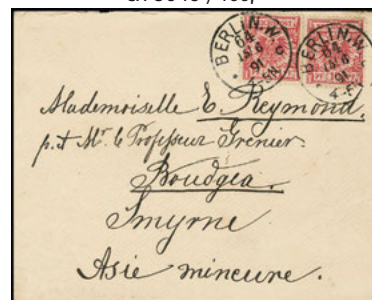 BERLIN.W.
64
91
BERLIN.W.
64
91
Mademoiselle E. Reymond.
p. ad. Mr. le Professeur Grenier.
Boudgea.
Smyrne
Asie mineure.